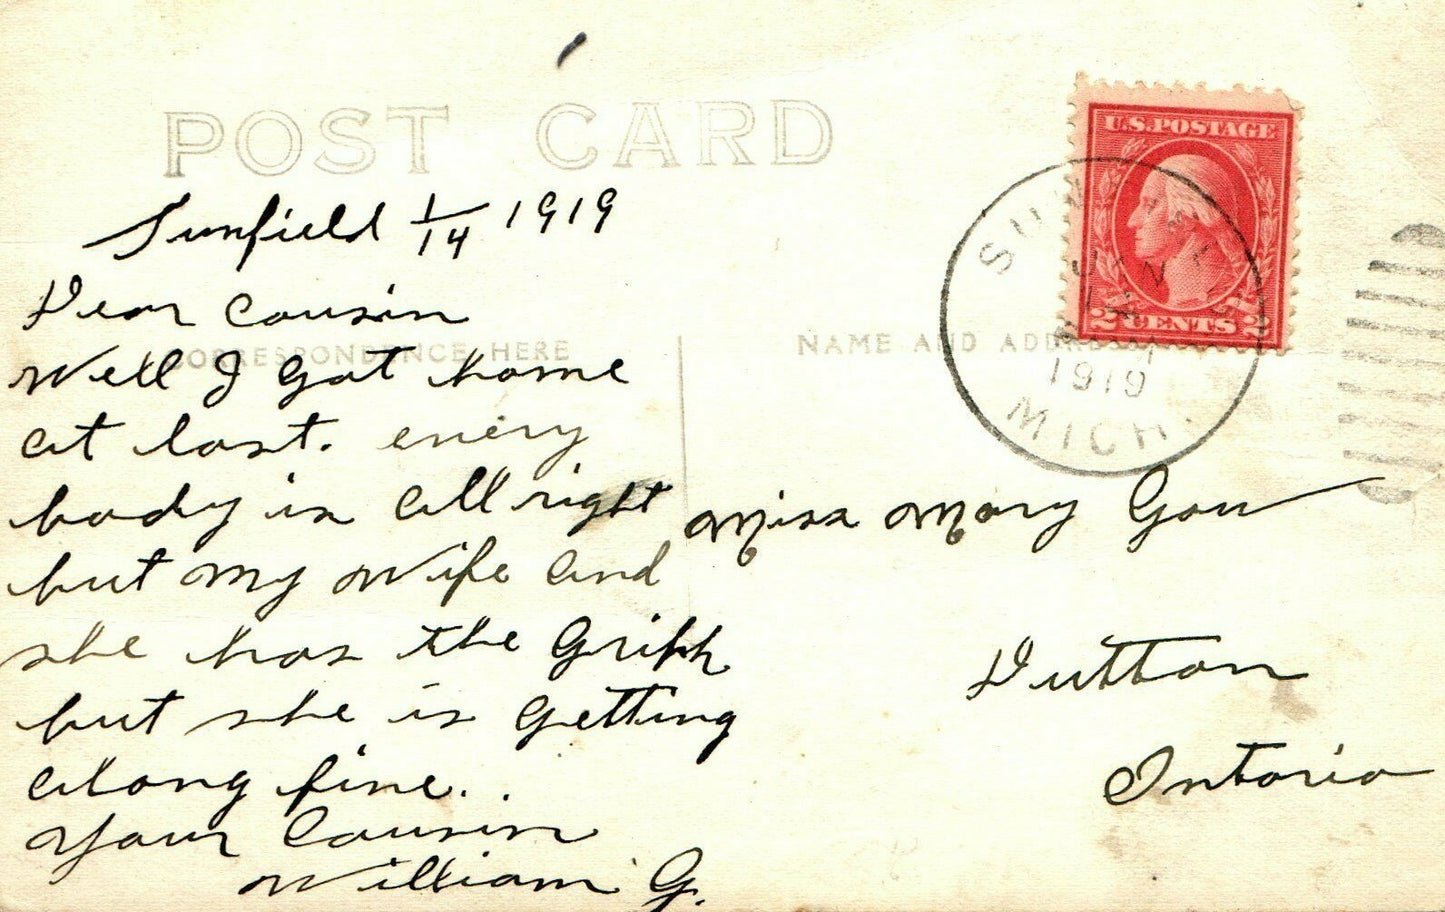 POST CARD
Sunfield 1/14 1919
Dear Cousin
CORRESPONDENCE HERE
Well I got home
at last. every
body is all right
but my wife and
she has the Griph
but she is getting
along fine..
your Cousin
William G.
U.S. POSTAGE
2 CENTS 2
NAME AND ADDRESS
SUNFIELD
JAN
14
1919
MICH.
Miss Mary Gow
Dutton
Ontario